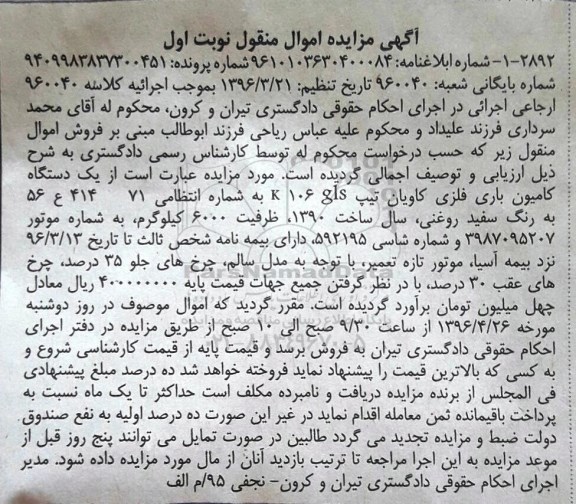 آگهی مزایده اموال منقول نوبت اول
۱-۲۸۹۲- شماره ابلاغنامه: ۹۶۱۰۱۰۳۶۳۰۴۰۰۰۸۴ شماره پرونده: ۹۴۰۹۹۸۳۸۳۷۳۰۰۴۵۱
شماره بایگانی شعبه: ۹۶۰۰۴۰ تاریخ تنظیم: ۱۳۹۶/۳/۲۱ بموجب اجرائیه کلاسه ۹۶۰۰۴۰
ارجاعی اجرائی در اجرای احکام حقوقی دادگستری تیران و کرون، محکوم له آقای محمد
سرداری فرزند علیداد و محکوم علیه عباس ریاحی فرزند ابوطالب مبنی بر فروش اموال
منقول زیر که حسب درخواست محکوم له توسط کارشناس رسمی دادگستری به شرح
ذیل ارزیابی و توصیف اجمالی گردیده است. مورد مزایده عبارت است از یک دستگاه
کامیون باری فلزی کاویان تیپ K ۱۰۶ gls به شماره انتظامی ۷۱ ۴۱۴ ع ۵۶
به رنگ سفید روغنی، سال ساخت ۱۳۹۰، ظرفیت ۶۰۰۰ کیلوگرم، به شماره موتور
۳۹۸۷۰۹۵۲۰۷ و شماره شاسی ۵۹۲۱۹۵، دارای بیمه نامه شخص ثالث تا تاریخ ۹۶/۳/۱۳
نزد بیمه آسیا، موتور تازه تعمیر، با توجه به مدل سالم، چرخ های جلو ۳۵ درصد، چرخ
های عقب ۳۰ درصد، با در نظر گرفتن جمیع جهات قیمت پایه ۴۰۰۰۰۰۰۰۰ ریال معادل
چهل میلیون تومان برآورد گردیده است. مقرر گردید که اموال موصوف در روز دوشنبه
مورخه ۱۳۹۶/۴/۲۶ از ساعت ۹/۳۰ صبح الی ۱۰ صبح از طریق مزایده در دفتر اجرای
احکام حقوقی دادگستری تیران به فروش برسد و قیمت پایه از قیمت کارشناسی شروع و
به کسی که بالاترین قیمت را پیشنهاد نماید فروخته خواهد شد ده درصد مبلغ پیشنهادی
فی المجلس از برنده مزایده دریافت و نامبرده مکلف است حداکثر تا یک ماه نسبت به
پرداخت باقیمانده ثمن معامله اقدام نماید در غیر این صورت ده درصد اولیه به نفع صندوق
دولت ضبط و مزایده تجدید می گردد طالبین در صورت تمایل می توانند پنج روز قبل از
موعد مزایده به این اجرا مراجعه تا ترتیب بازدید آنان از مال مورد مزایده داده شود. مدیر
اجرای احکام حقوقی دادگستری تیران و کرون- نجفی ۹۵/م الف